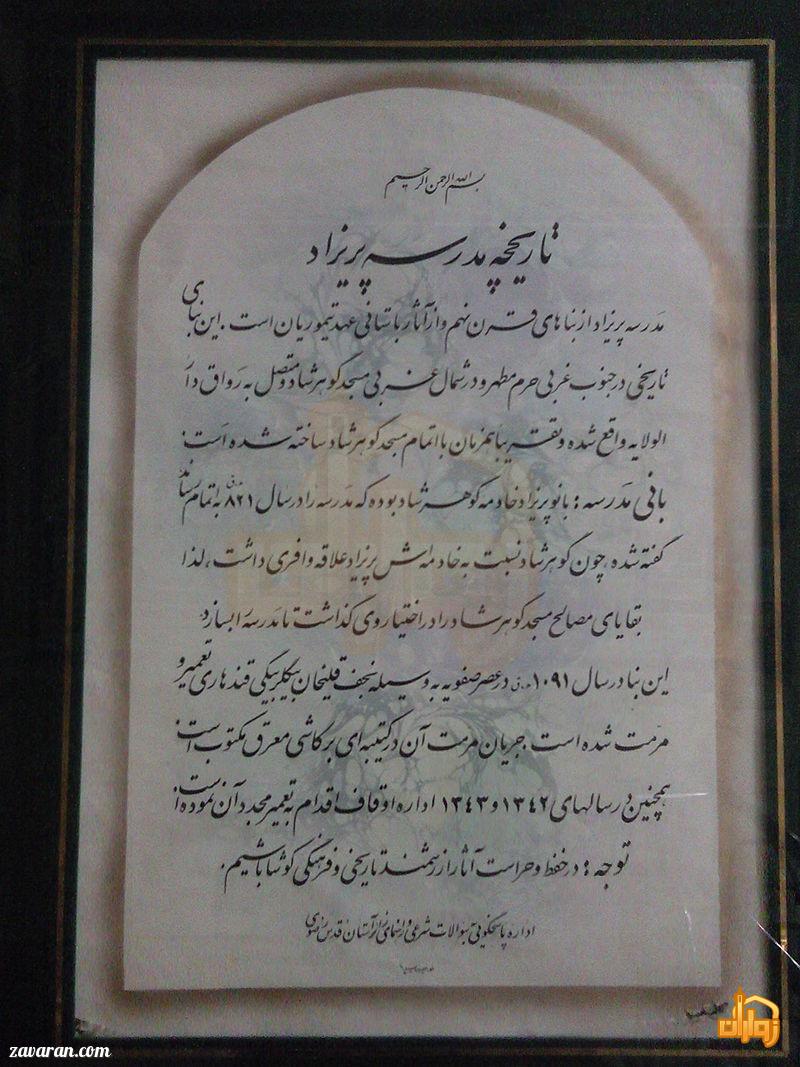 بسم الله الرحمن الرحیم
تاریخچه مدرسه پریزاد
مدرسه پریزاد از بناهای قرن نهم و از آثار باستانی عهد تیموریان است . این بنای
تاریخی در جنوب غربی حرم مطهر و در شمال غربی مسجد گوهرشاد و متصل به رواق دار
الولایه واقع شده و تقریباً همزمان با اتمام مسجد گوهرشاد ساخته شده است .
بانی مدرسه : بانو پریزاد خادمه گوهرشاد بوده که مدرسه را در سال ۸۲۱ ه.ق به اتمام رساند
گفته شده ، چون گوهرشاد نسبت به خادمه اش پریزاد علاقه وافری داشت ، لذا
بقایای مصالح مسجد گوهرشاد را در اختیار وی گذاشت تا مدرسه را بسازد .
این بنا در سال ۱۰۹۱ ه.ق در عصر صفویه به وسیله نجف قلیخان بیگلربیگی قندهاری تعمیر و
مرمت شده است . جریان مرمت آن در کتیبه ای بر کاشی معرق مکتوب است .
همچنین در سالهای ۱۳۴۲ و ۱۳۴۳ اداره اوقاف اقدام به تعمیر مجدد آن نموده است
توجه : در حفظ و حراست آثار ارزشمند تاریخی و فرهنگی کوشا باشیم .
اداره پاسخگویی به سوالات شرعی و راهنمای زائر آستان قدس رضوی
زواران
zavaran.com